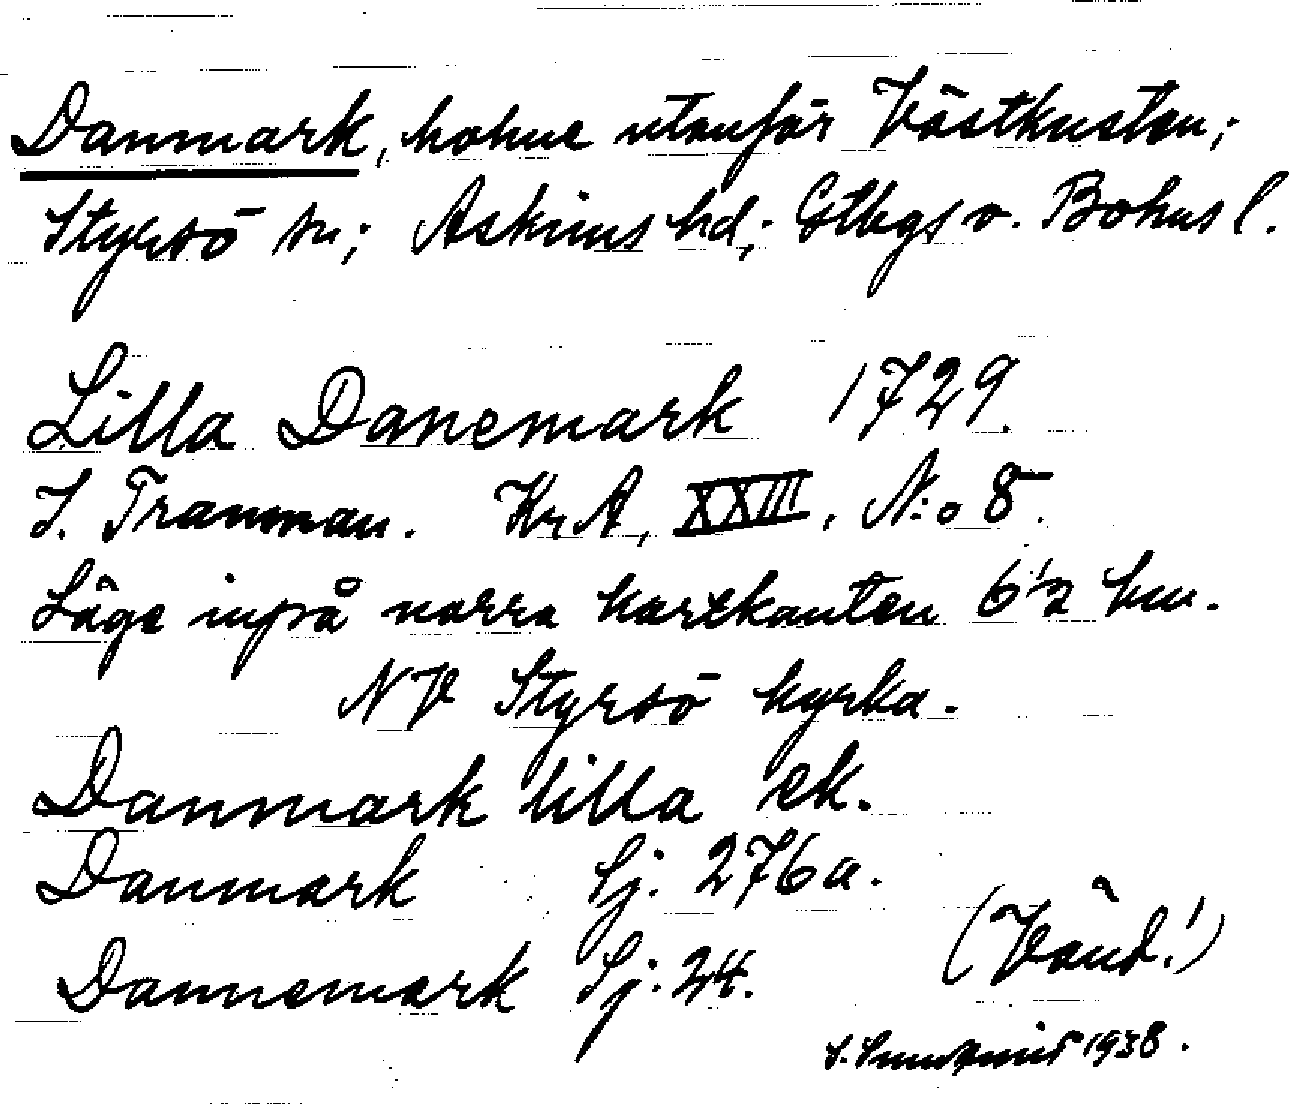 Danmark, holme utanför Västkusten;
Styrsö sn; Askims hd; Gtbgs o. Bohus l.
Lilla Danemark 1729.
J. Tranman. KrA, XXIII, N:o 8.
Läge inpå norra kartkanten 6 1/2 km.
NV Styrsö kyrka.
Danmark lilla ek.
Danmark Sj. 276a.
Dannemark Sj. 24.
(Vänd!)
1938.